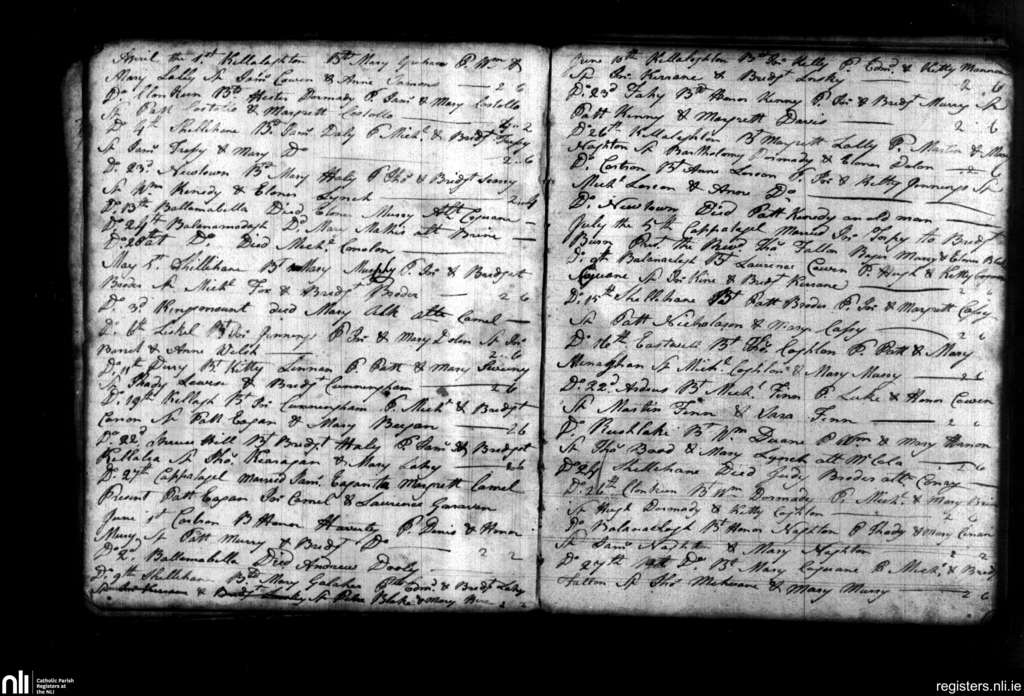 April the 1st Kellalaghton Bt Mary Graham P. Wm &
Mary Lally Sp Jams Cowen & Anne 2 6
Do Clonkeen Bt Hester Dormady P. Jams & Mary Costello
Sp Patt Costolio & Margrett Costollo
Do 4th Shellehane Bt Jams Daly P Michl & Bridgt Trepy
Sp Jams Trepy & Mary Do 2 6
Do 23d Newtown Bt Mary Haly P Thos & Bridgt
Sp Wm Kenedy & Elonor Lynch 2
Do 13th Ballamabilla Died Elonor Murry Alt Coguane
Do 24th Balanamadagh Do Mary alt Brine
Do 28th at Do Died Michl Conolon
May 1st Shellehane Bt Mary Murphy P. Jno & Bridget
Broder Sp Michl Fox & Bridgt Broder 2 6
Do 3d Ringomount died Mary alt Camel
Do 6th Lickel Bt Jno Jenning P Jno & Mary Dolen Sp Jno
Burck & Anne Welsh 2 6
Do 11th Derry Bt Kitty Linnan P. Patt & Mary Sweeny
Sp Thady Lawce & Bridgt Cunningham 2 6
Do 19th Kellagh Bt Jno Cunningham P. Michl & Bridgt
Conon Sp Patt Eagan & Mary Bergan 2 6
Do 22d Spruce Hill Bt Bridgt Haly P. Jams & Bridget
Kellalea Sp Thos Kearagan & Mary Lahy 2 6
Do 27th Cappalagel Married Jams Eagan to Margrett Camel
Present Patt Eagan Jno Camel & Laurence Garavin
June 1st Cartron B Honor Haverty P. Denis & Honor
Murry Sp Patt Murry & Bridgt Do 2 2
Do 2d Ballamabilla Died Andrew Dooly
Do 9th Shellehan Bt Mary Galahar P Edmd & Bridgt Lahy
& Bridgt Sp Peter Blake & Mary 2 2
June 10th Kellalaghton Bt Jno Kelly P. Edmd & Kitty Mannon
Sp Jno Kerrane & Bridgt Lasky 2 6
Do 23d Fahy Bt Honor Kenny P. Jno & Bridgt Murry Sp
Patt Kenny & Margrett Davis 2 6
Do 26th Kellalaghton Bt Margrett Lally P. Martin & Mary
Naghton Sp Bartholomy Dormady & Elonor Dolan 2 6
Do Cartron Bt Anne Larcan P. Jno & Kitty Jennings Sp
Michl Larcan & Anne Do
Do Newtown Died Patt Kenedy an old man
July the 5th Cappalagel Maried Jno Trepy to Bridgt
Burn Prest the Revd Thos Fallon Bryan Murry & Elonor Blake
Do 9th Balanaclagh Bt Laurence Cowen P. Hugh & Kitty
Coguane Sp Jno Kine & Bridgt Kerrane 2 6
Do 15th Shellehane Bt Patt Broder P. Jno & Margrett Casey
Sp Patt Nicholason & Mary Casey 2 6
Do 16th Eastwell Bt Thos Coghlan P. Patt & Mary
Henaghan Sp Michl Coghlan & Mary Murry 2 6
Do 22d Ardrus Bt Michl Finn P. Luke & Honor Cowen
Sp Martin Finn & Sara Finn 2 6
Do Rushlake Bt Wm Duane P Wm & Mary Hanon
Sp Thos Bood & Mary Lynch alt McCola 2 6
Do 24 Shellehane Died Judy Broder alt Conry
Do 26th Clonkeen Bt Wm Dormady P. Michl & Mary Brine
Sp Hugh Dormady & Kitty Coghlan 2 6
Do Balanaclagh Bt Honor Naghton P Thady & Mary Conan
Sp Jams Naghton & Mary Naghton 2 2
Do 27th Do Bt Mary Coguane P. Michl & Bridgt
Fallon Sp Thos & Mary Murry 2 6
nli
Catholic Parish
Registers at
the NLI
registers.nli.ie